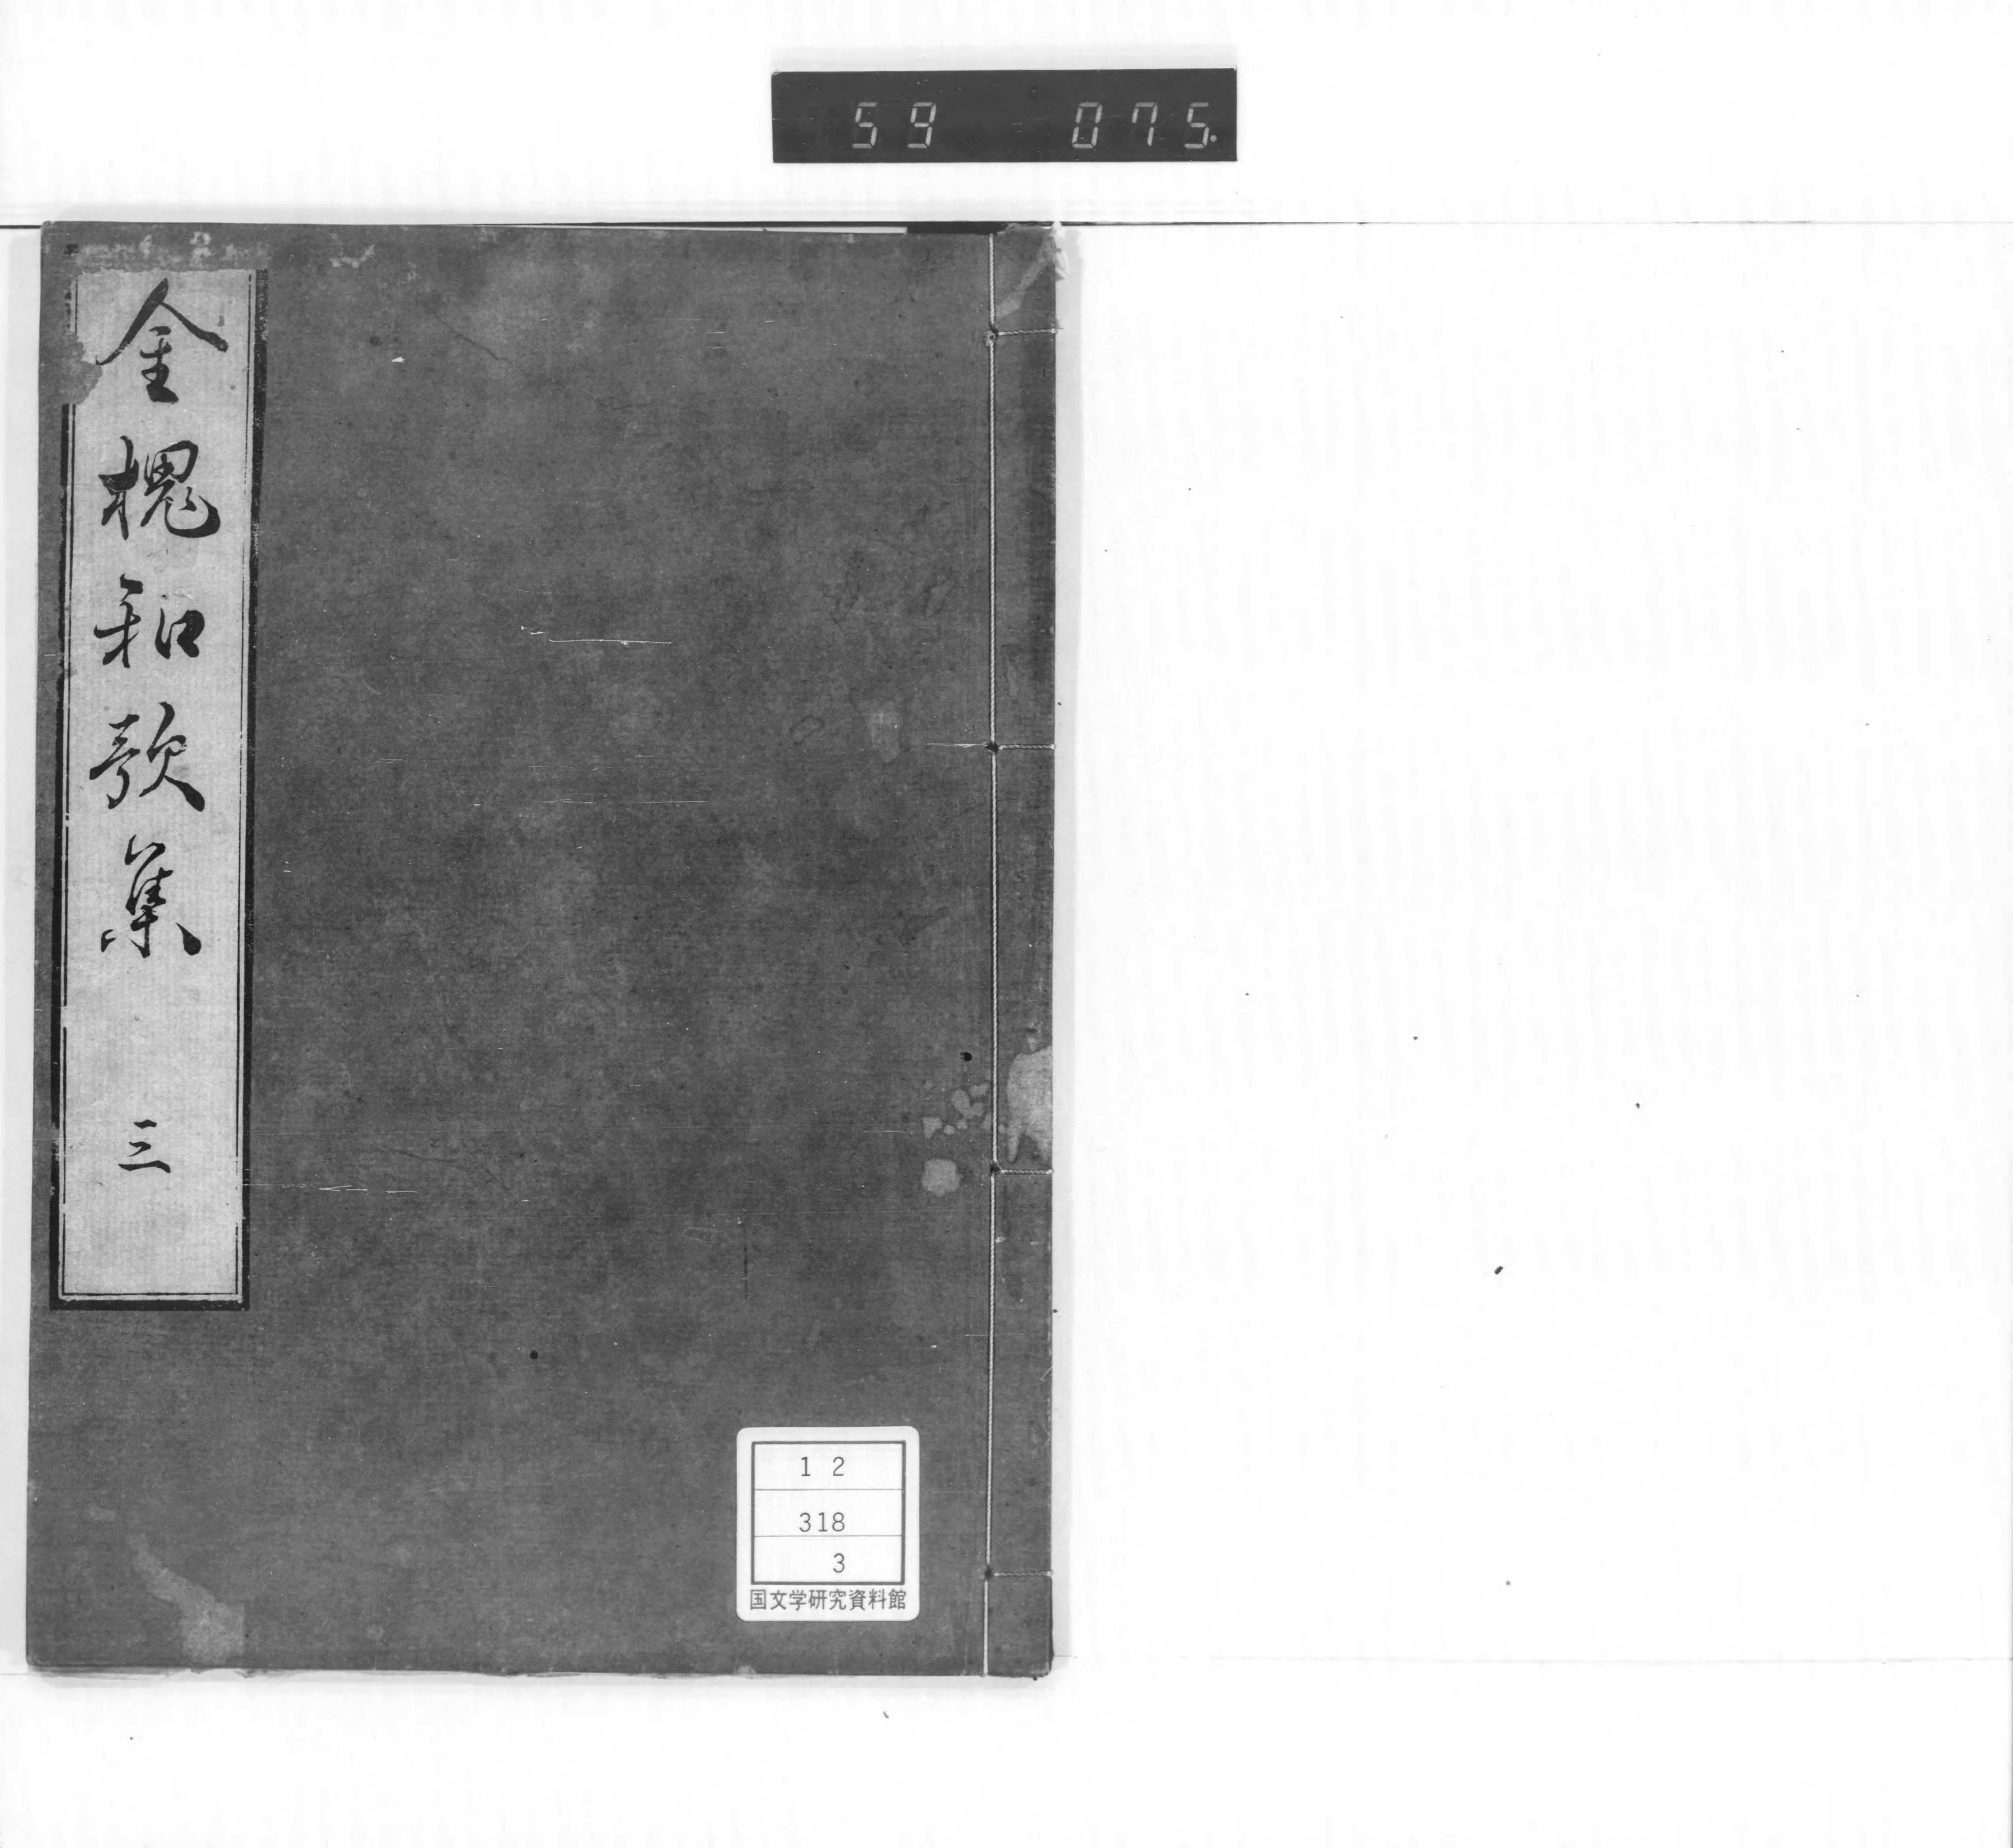 59 075.
金槐和歌集 三
12
318
3
国文学研究資料館